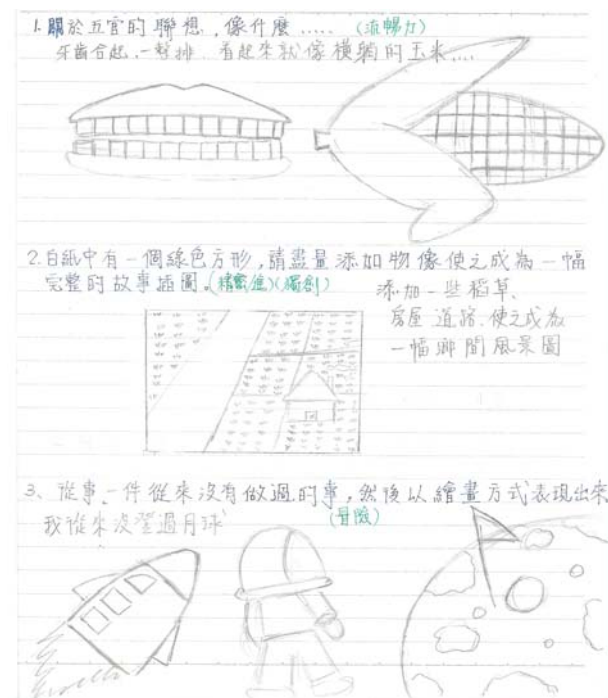 1. 關於五官的聯想，像什麼..... (流暢力)
牙齒合起，一整排，看起來就像橫躺的玉米....
2. 白紙中有一個綠色方形，請盡量添加物像使之成為一幅
完整的故事插圖。(精密/進)(獨創)
添加一些稻草、
房屋、道路、使之成為
一幅鄉間風景圖
3、從事一件從來沒有做過的事，然後以繪畫方式表現出來
(冒險)
我從來沒登過月球